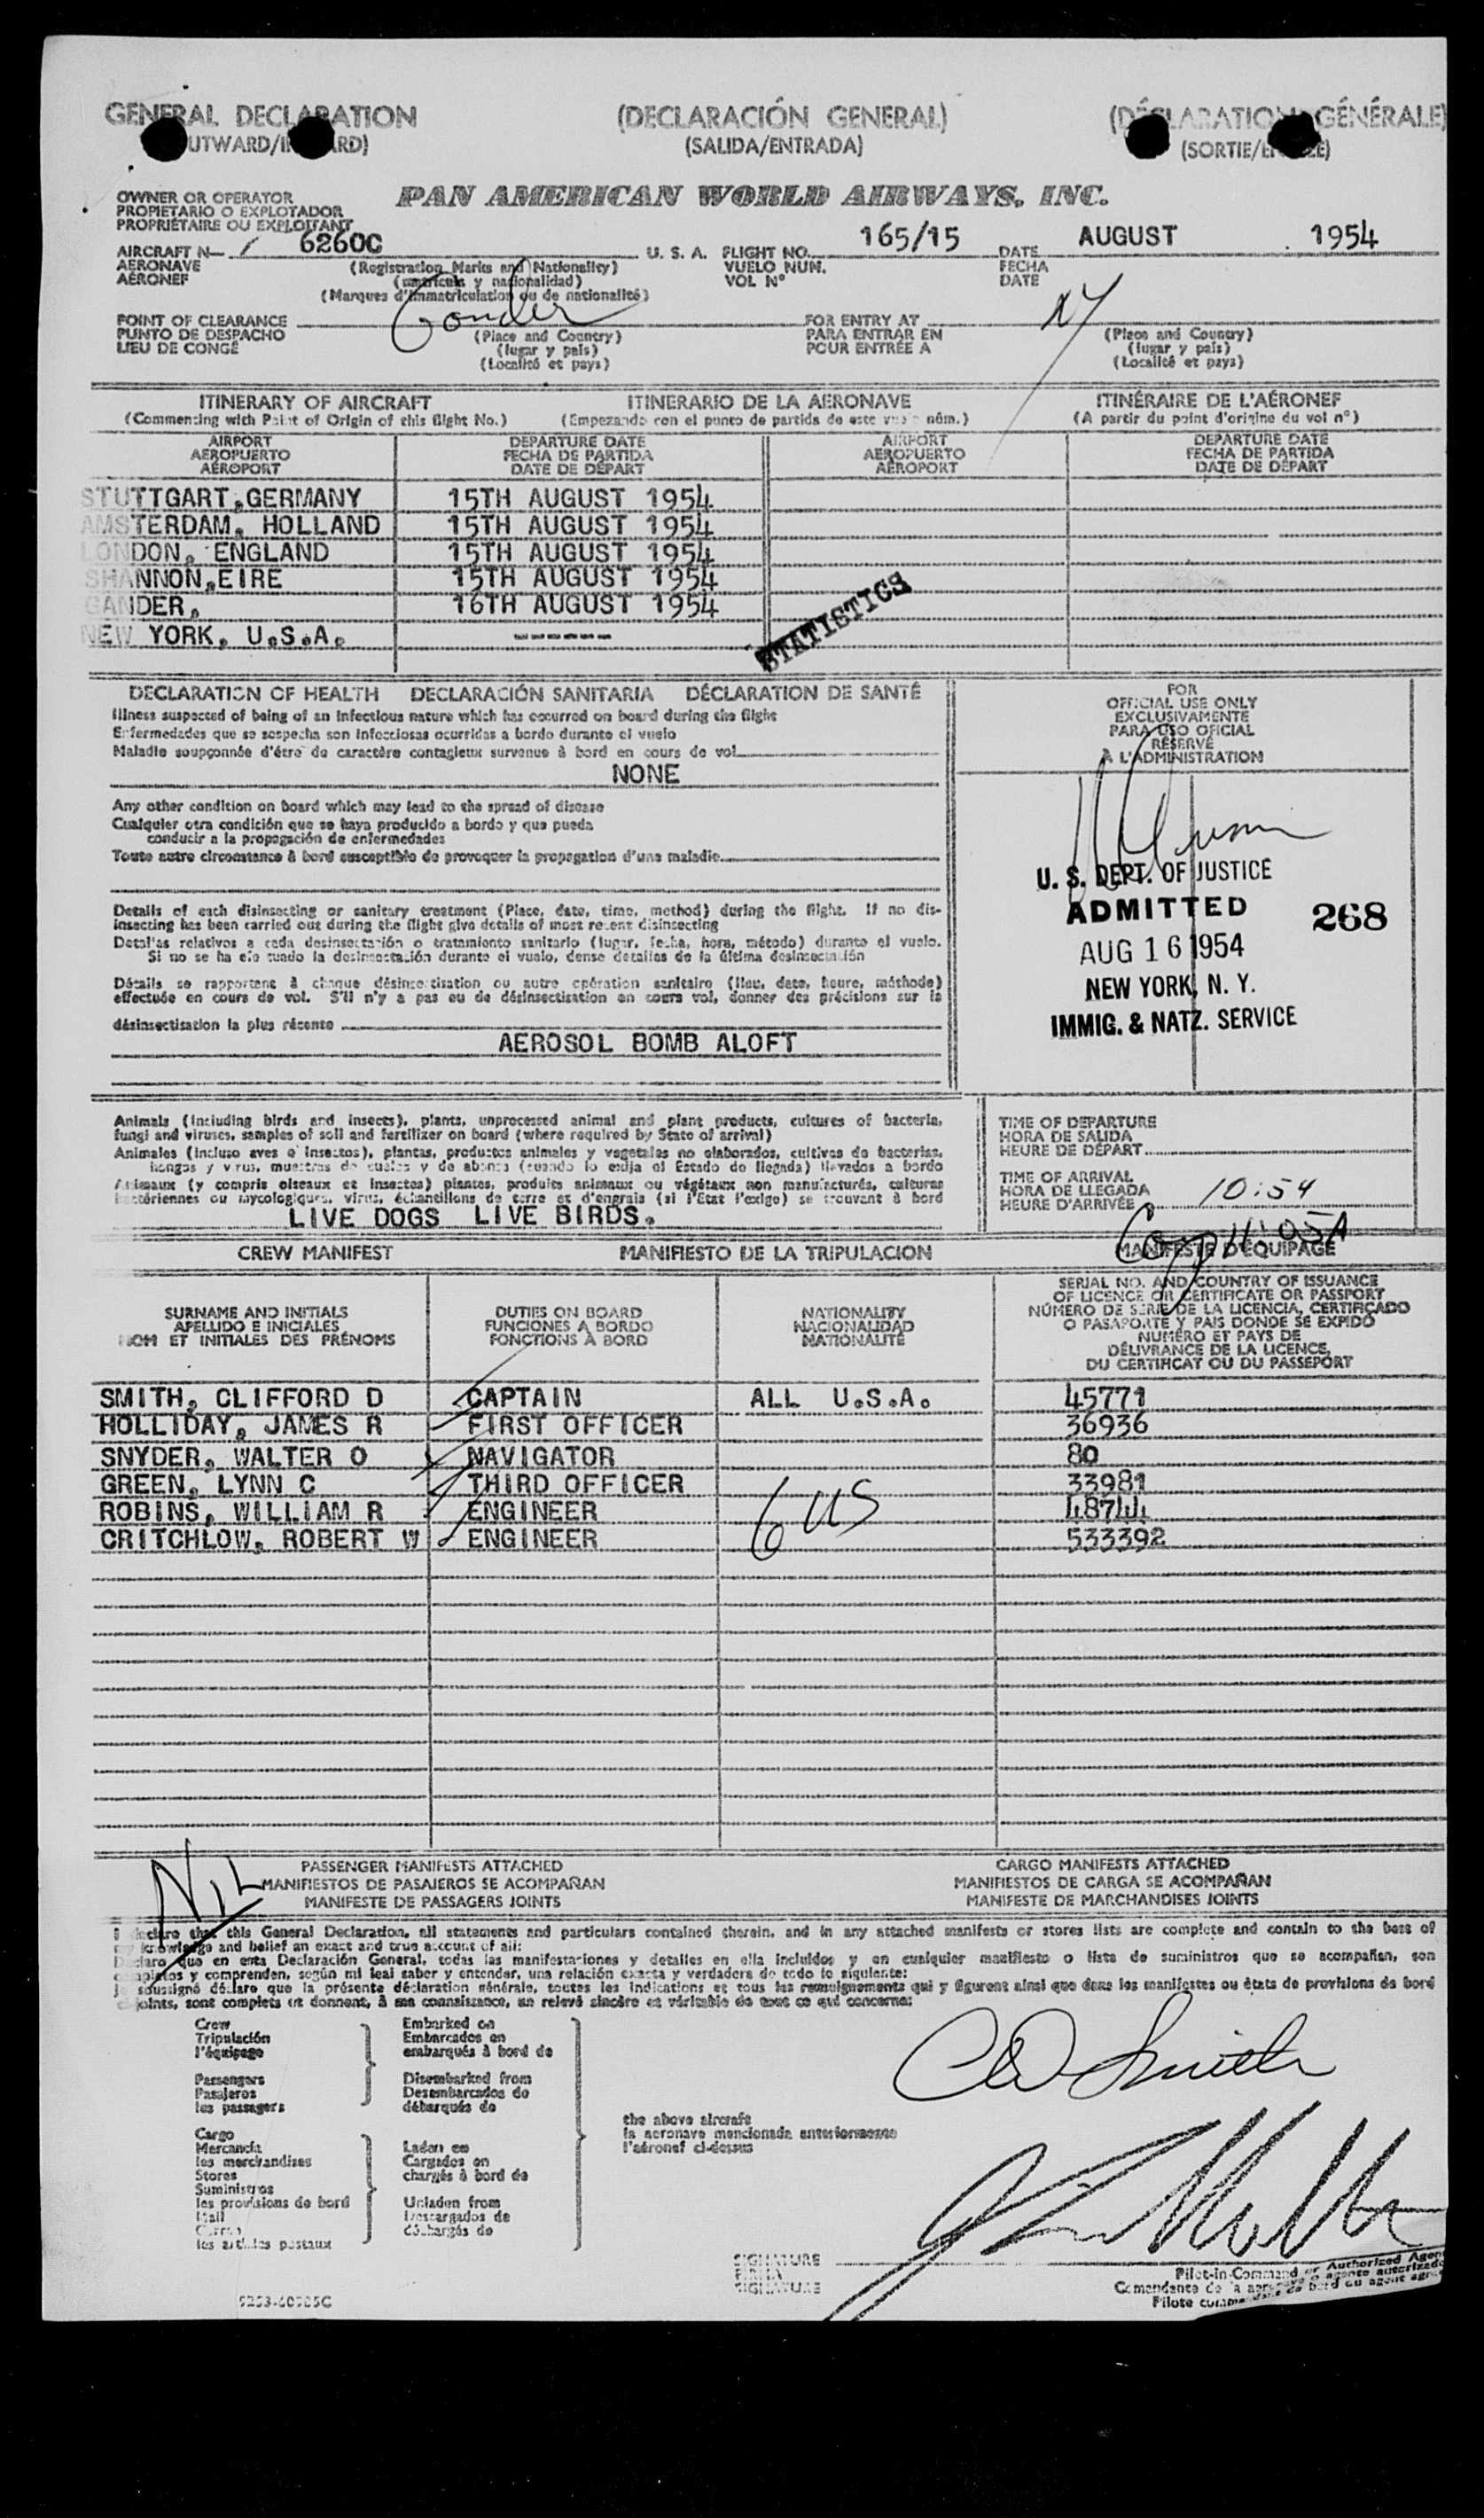 GENERAL DECLARATION (DECLARACIÓN GENERAL) (DÉCLARATION GÉNÉRALE)
(OUTWARD/INWARD) (SALIDA/ENTRADA) (SORTIE/ENTRÉE)
OWNER OR OPERATOR PAN AMERICAN WORLD AIRWAYS, INC.
PROPIETARIO O EXPLOTADOR
PROPRIÉTAIRE OU EXPLOITANT
AIRCRAFT N— 6260C U. S. A. FLIGHT NO. 165/15 DATE AUGUST 1954
AERONAVE (Registration Marks and Nationality) VUELO NUM. FECHA
AÉRONEF (matrícula y nacionalidad) VOL Nº DATE
(Marques d'immatriculation ou de nationalité)
POINT OF CLEARANCE Gander FOR ENTRY AT NY
PUNTO DE DESPACHO (Place and Country) PARA ENTRAR EN (Place and Country)
LIEU DE CONGÉ (lugar y país) POUR ENTRÉE A (lugar y país)
(Localité et pays) (Localité et pays)
ITINERARY OF AIRCRAFT ITINERARIO DE LA AERONAVE ITINÉRAIRE DE L'AÉRONEF
(Commencing with Point of Origin of this flight No.) (Empezando con el punto de partida de este vuelo núm.) (A partir du point d'origine du vol nº)
AIRPORT DEPARTURE DATE AIRPORT DEPARTURE DATE
AEROPUERTO FECHA DE PARTIDA AEROPUERTO FECHA DE PARTIDA
AÉROPORT DATE DE DÉPART AÉROPORT DATE DE DÉPART
STUTTGART,GERMANY 15TH AUGUST 1954
AMSTERDAM, HOLLAND 15TH AUGUST 1954
LONDON, ENGLAND 15TH AUGUST 1954
SHANNON,EIRE 15TH AUGUST 1954
GANDER, 16TH AUGUST 1954
NEW YORK, U.S.A. -------
STATISTICS
DECLARATION OF HEALTH DECLARACIÓN SANITARIA DÉCLARATION DE SANTÉ
Illness suspected of being of an infectious nature which has occurred on board during the flight
Enfermedades que se sospecha son infecciosas ocurridas a bordo durante el vuelo
Maladie soupçonnée d'être de caractère contagieux survenue à bord en cours de vol
NONE
Any other condition on board which may lead to the spread of disease
Cualquier otra condición que se haya producido a bordo y que pueda
conducir a la propagación de enfermedades
Toute autre circonstance à bord susceptible de provoquer la propagation d'une maladie
Details of each disinsecting or sanitary treatment (Place, date, time, method) during the flight. If no dis-
insecting has been carried out during the flight give details of most recent disinsecting
Detalles relativos a cada desinsectación o tratamiento sanitario (lugar, fecha, hora, método) durante el vuelo.
Si no se ha efectuado la desinsectación durante el vuelo, dense detalles de la última desinsectación
Détails se rapportant à chaque désinsectisation ou autre opération sanitaire (lieu, date, heure, méthode)
effectuée en cours de vol. S'il n'y a pas eu de désinsectisation en cours vol, donner des précisions sur la
désinsectisation la plus récente
AEROSOL BOMB ALOFT
FOR
OFFICIAL USE ONLY
EXCLUSIVAMENTE
PARA USO OFICIAL
RÉSERVÉ
À L'ADMINISTRATION
U. S. DEPT. OF JUSTICE
ADMITTED 268
AUG 16 1954
NEW YORK, N. Y.
IMMIG. & NATZ. SERVICE
Animals (including birds and insects), plants, unprocessed animal and plant products, cultures of bacteria,
fungi and viruses, samples of soil and fertilizer on board (where required by State of arrival)
Animales (incluso aves e insectos), plantas, productos animales y vegetales no elaborados, cultivos de bacterias,
hongos y virus, muestras de suelos y de abonos (cuando lo exija el Estado de llegada) llevados a bordo
Animaux (y compris oiseaux et insectes) plantes, produits animaux ou végétaux non manufacturés, cultures
bactériennes ou mycologiques, virus, échantillons de terre et d'engrais (si l'Etat l'exige) se trouvant à bord
LIVE DOGS LIVE BIRDS.
TIME OF DEPARTURE
HORA DE SALIDA
HEURE DE DÉPART
TIME OF ARRIVAL
HORA DE LLEGADA 10:54
HEURE D'ARRIVÉE
11:05A
CREW MANIFEST MANIFIESTO DE LA TRIPULACION MANIFESTE D'ÉQUIPAGE
SURNAME AND INITIALS DUTIES ON BOARD NATIONALITY SERIAL NO. AND COUNTRY OF ISSUANCE
APELLIDO E INICIALES FUNCIONES A BORDO NACIONALIDAD OF LICENCE OR CERTIFICATE OR PASSPORT
NOM ET INITIALES DES PRÉNOMS FONCTIONS À BORD NATIONALITÉ NÚMERO DE SERIE DE LA LICENCIA, CERTIFICADO
O PASAPORTE Y PAIS DONDE SE EXPIDÓ
NUMÉRO ET PAYS DE
DÉLIVRANCE DE LA LICENCE,
DU CERTIFICAT OU DU PASSEPORT
SMITH, CLIFFORD D CAPTAIN ALL U.S.A. 45771
HOLLIDAY, JAMES R FIRST OFFICER 36936
SNYDER, WALTER O NAVIGATOR 80
GREEN, LYNN C THIRD OFFICER 33981
ROBINS, WILLIAM R ENGINEER 6 US 48744
CRITCHLOW, ROBERT W ENGINEER 533392
NIL
PASSENGER MANIFESTS ATTACHED CARGO MANIFESTS ATTACHED
MANIFIESTOS DE PASAJEROS SE ACOMPAÑAN MANIFIESTOS DE CARGA SE ACOMPAÑAN
MANIFESTE DE PASSAGERS JOINTS MANIFESTE DE MARCHANDISES JOINTS
I declare that this General Declaration, all statements and particulars contained therein, and in any attached manifests or stores lists are complete and contain to the best of
my knowledge and belief an exact and true account of all:
Declaro que en esta Declaración General, todas las manifestaciones y detalles en ella incluidos y en cualquier manifiesto o lista de suministros que se acompañan, son
completos y comprenden, según mi leal saber y entender, una relación exacta y verdadera de todo lo siguiente:
je soussigné déclare que la présente déclaration générale, toutes les indications et tous les renseignements qui y figurent ainsi que dans les manifestes ou états de provisions de bord
ci-joints, sont complets et donnent, à ma connaissance, un relevé sincère et véritable de tout ce qui concerne:
Crew Embarked on
Tripulación Embarcados en
l'équipage embarqués à bord de
Passengers Disembarked from
Pasajeros Desembarcados de
les passagers débarqués de
the above aircraft
la aeronave mencionada anteriormente
l'aéronef ci-dessus
Cargo
Mercancía Laden on
les marchandises Cargados en
Stores chargés à bord de
Suministros
les provisions de bord Unladen from
Mail Descargados de
Correo déchargés de
les articles postaux
CD Smith
SIGNATURE
FIRMA
SIGNATURE
Pilot-in-Command or Authorized Agent
Comandante de la aeronave o agente autorizado
Pilote commandant de bord ou agent agréé